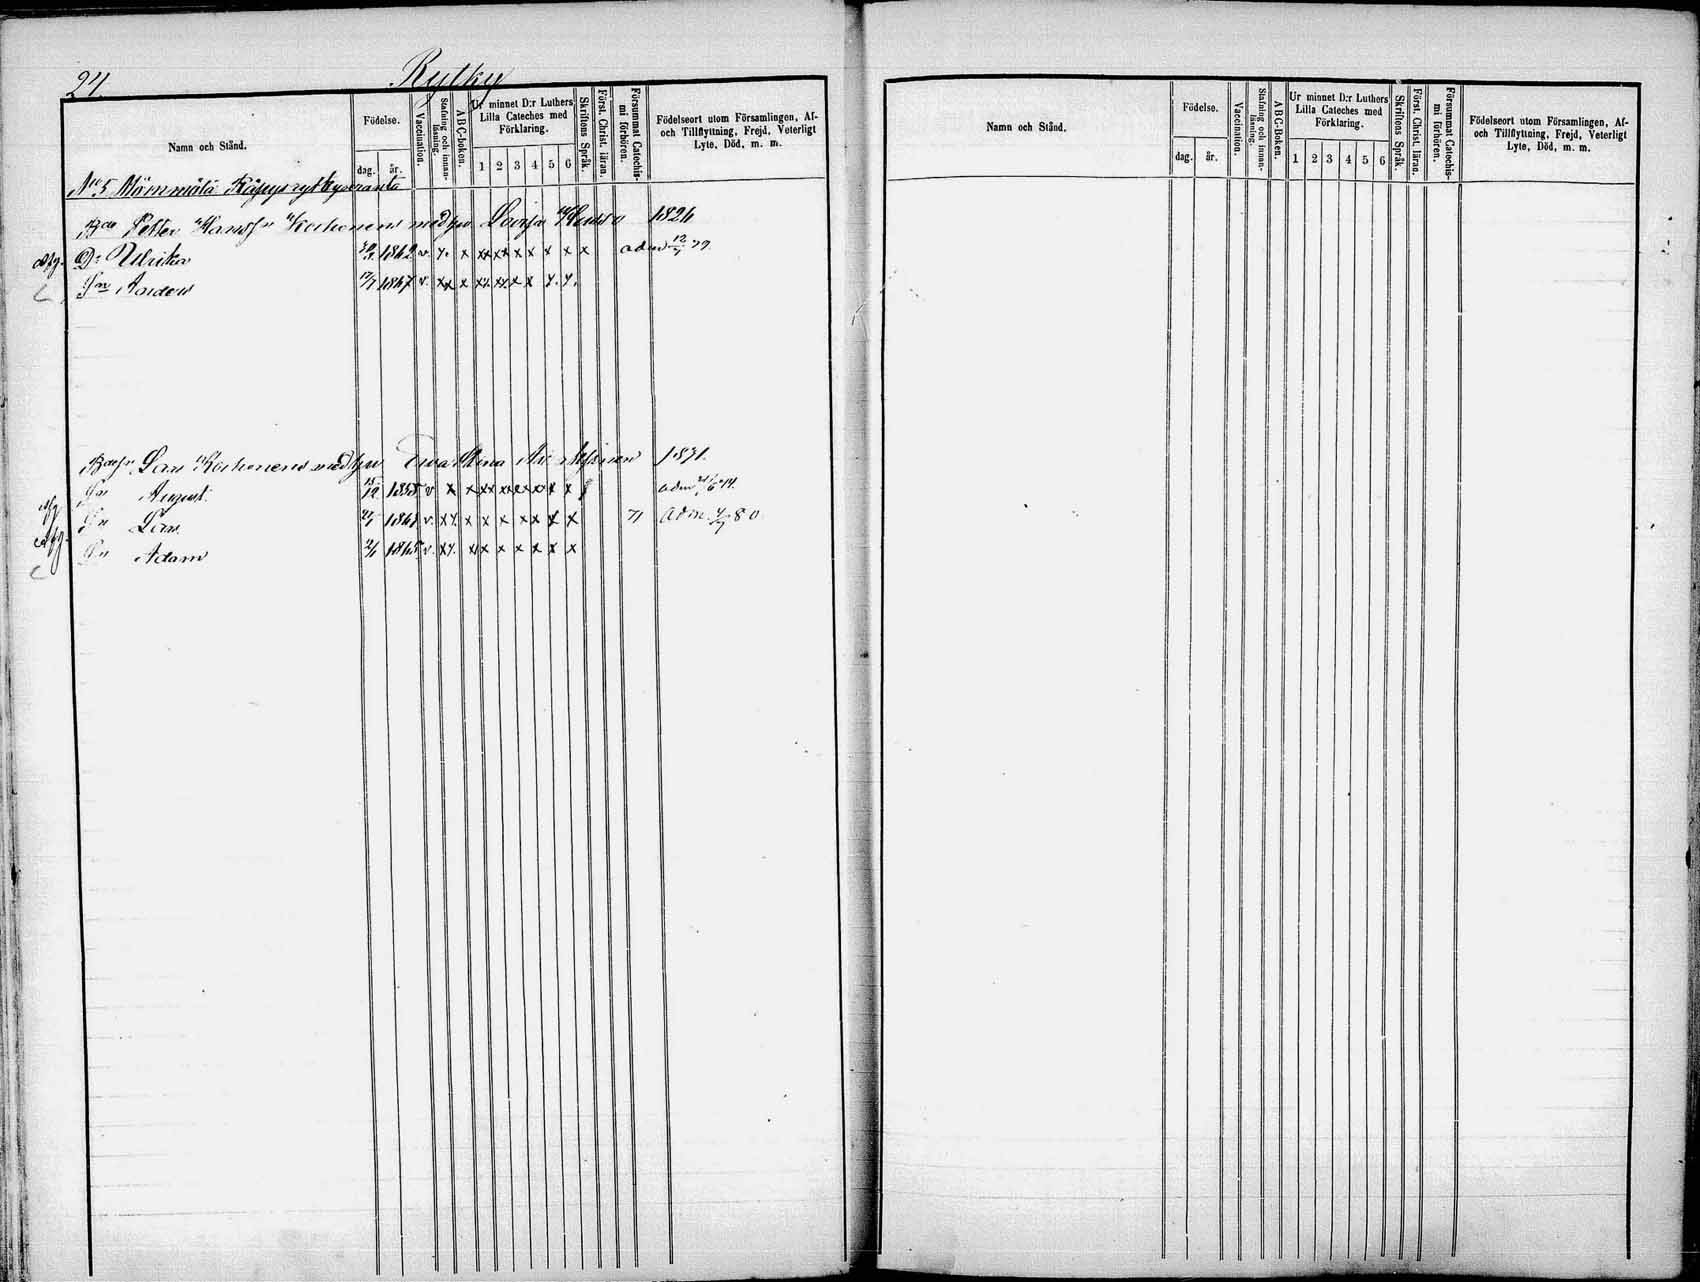 24.
Rytky
Namn och Stånd.
Födelse.
dag.
år.
Vaccination.
Stafning och innanläsning.
A B C-boken.
Ur minnet D:r Luthers
Lilla Cateches med
Förklaring.
1 2 3 4 5 6
Skriftens Språk.
Först. Christ. läran.
Försummat Catechismi förhören.
Födelseort utom Församlingen, Af-
och Tillflyttning, Frejd, Veterligt
Lyte, Död, m. m.
No 5
Petter Hansn Korhonens med hu Lovisa 1826
afg. Dr Ulrika 1862 v. x x xx xx x x x x x adm 12/7 79
Sn Anders 17/7 1867 v. xx x xx xx x x x x
Lars Korhonens med hu Eva Stina 1871.
Sn August. 15/12 1855 v x x xx xx x x x x adm
Sn Lars 1861 v. xx x x x x x x x 71 adm. 4/7 80
afg.
Sn Adam 2/1 1865 v. xx x x x x x x x
Namn och Stånd.
Födelse.
dag.
år.
Vaccination.
Stafning och innanläsning.
A B C-Boken.
Ur minnet D:r Luthers
Lilla Cateches med
Förklaring.
1 2 3 4 5 6
Skriftens Språk.
Först. Christ. läran.
Försummat Catechismi förhören.
Födelseort utom Församlingen, Af-
och Tillflyttning, Frejd, Veterligt
Lyte, Död, m. m.